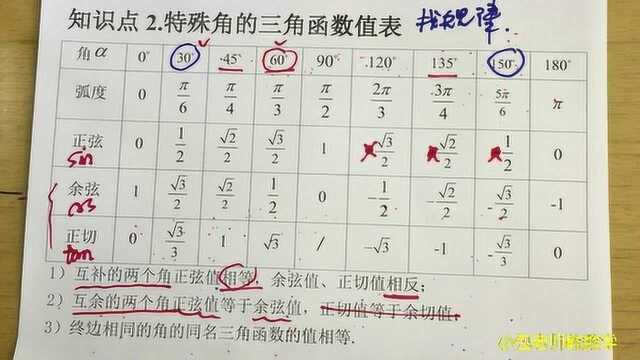 知识点 2.特殊角的三角函数值表 找规律.
角α 0° 30° 45° 60° 90° 120° 135° 150° 180°
弧度 0 π/6 π/4 π/3 π/2 2π/3 3π/4 5π/6 π
正弦 sin 0 1/2 √2/2 √3/2 1 √3/2 √2/2 1/2 0
余弦 cos 1 √3/2 √2/2 1/2 0 -1/2 -√2/2 -√3/2 -1
正切 tan 0 √3/3 1 √3 / -√3 -1 -√3/3 0
1）互补的两个角正弦值相等，余弦值、正切值相反；
2）互余的两个角正弦值等于余弦值，正切值等于余切值；
3）终边相同的角的同名三角函数的值相等.